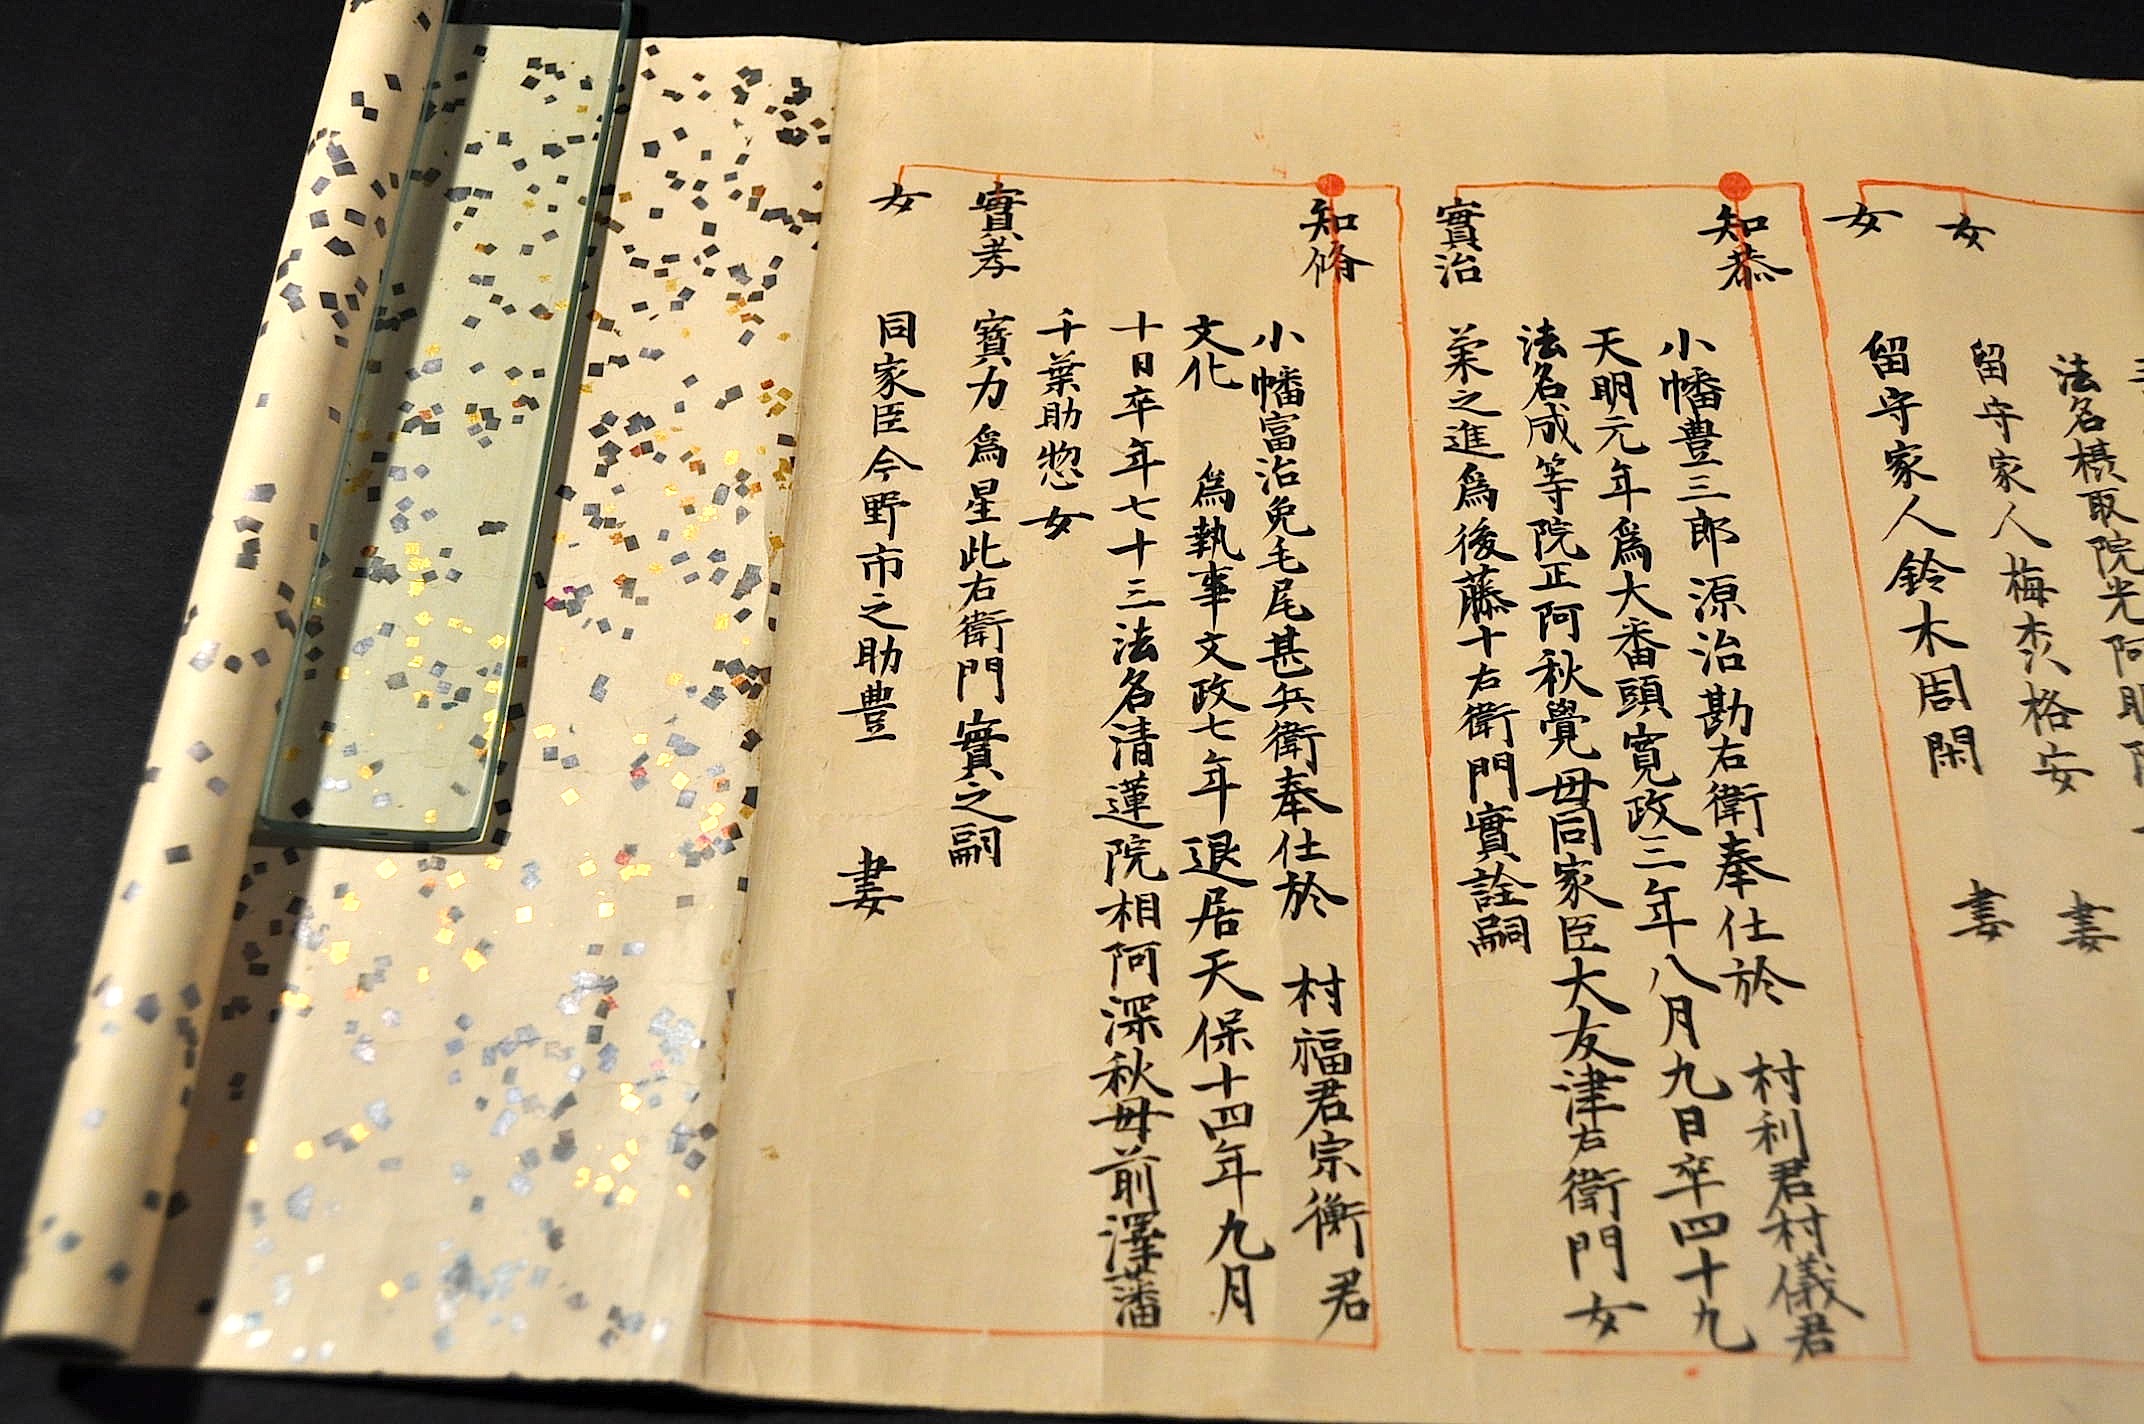 法名橫取院光阿
女 留守家人梅杰格安 妻
女 留守家人鈴木周閑
知恭
小幡豊三郎源治勘右衛奉仕於 村利君村儀君
天明元年爲大番頭寛政三年八月九日卒四十九
法名成等院正阿秋覺母同家臣大友津右衛門女
實治 榮之進爲後藤十右衛門實詮嗣
知脩
小幡富治免毛尾甚兵衛奉仕於 村福君宗衡君
文化 爲執事文政七年退居天保十四年九月
十日卒年七十三法名清蓮院相阿深秋母前澤藩
千葉助惣女
實孝 寶力爲星此右衛門實之嗣
女 同家臣今野市之助豊 妻